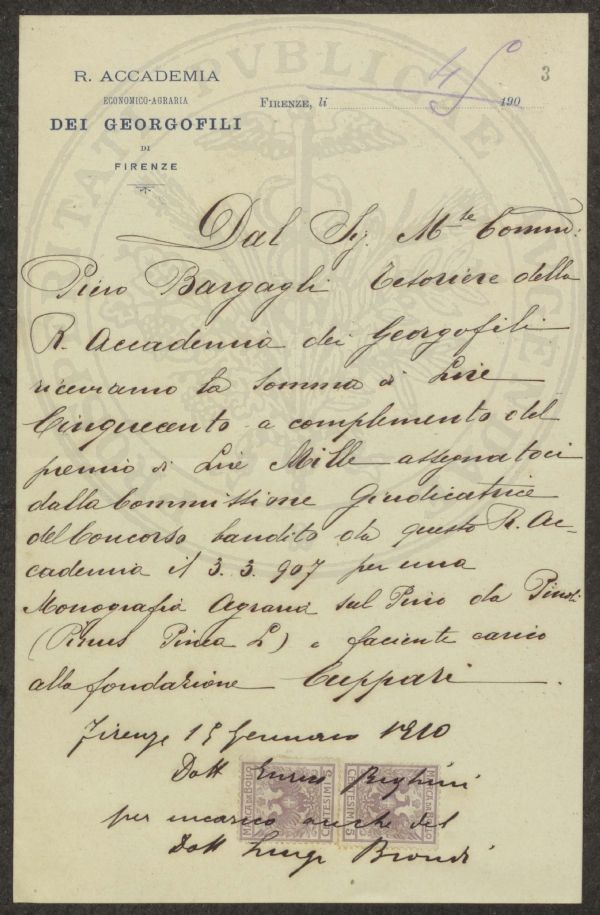 R. ACCADEMIA
ECONOMICO-AGRARIA
DEI GEORGOFILI
DI
FIRENZE
FIRENZE, li 190
45
3
Dal Sig. M.te Comm:
Piero Bargagli Tesoriere della
R. Accademia dei Georgofili
riceviamo la somma di Lire
Cinquecento a complemento del
premio di Lire Mille assegnatoci
dalla Commissione Giudicatrice
del Concorso bandito da questa R. Ac-
cademia il 3. 3. 907 per una
Monografia Agraria sul Pino da Pinoli
(Pinus Pinea L) e faciente carico
alla fondazione Cuppari
Firenze 15 Gennaio 1910
Dott Enrico
per incarico anche del
Dott Luigi Biondi
MARCA DA BOLLO CENTESIMI 5
MARCA DA BOLLO CENTESIMI 5